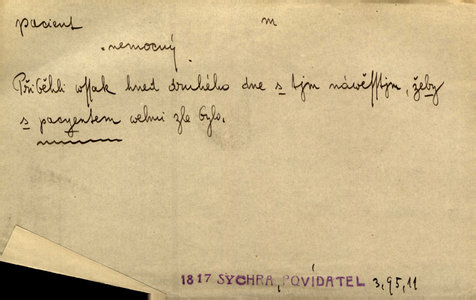 pacient m
nemocný
Přiběhli wssak hned druhého dne s tjm náwěsstjm, žeby
s pacyentem welmi zle bylo.
1817 SYCHRA, POVÍDATEL 3,95,11